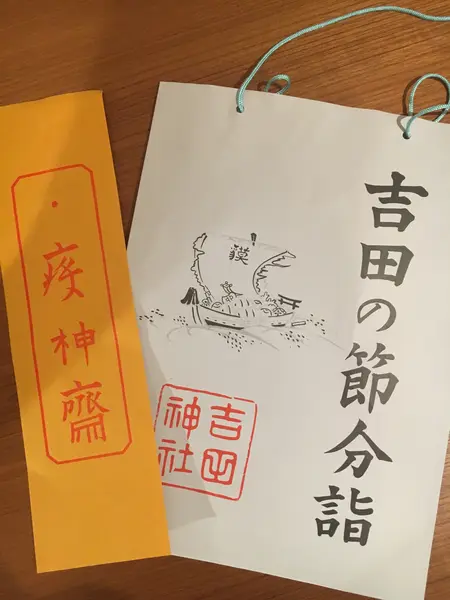 吉田の節分詣
貘
吉田
神社
疫神齋